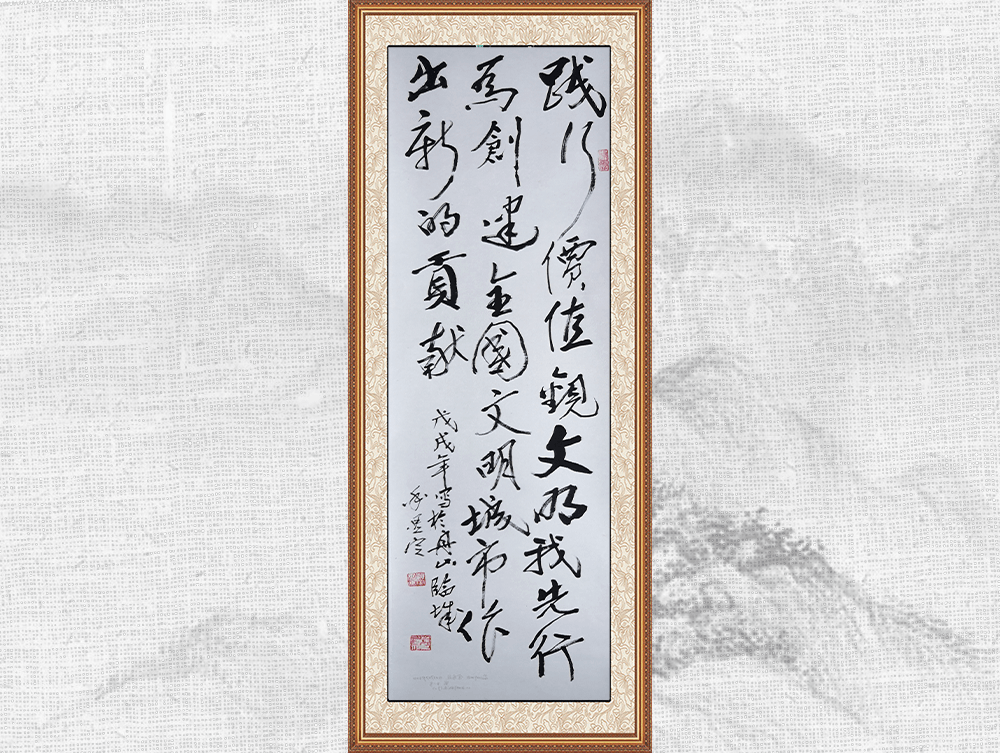 践行價值觀文明我先行
為創建全國文明城市作
出新的貢献
戊戌年写於舟山臨城